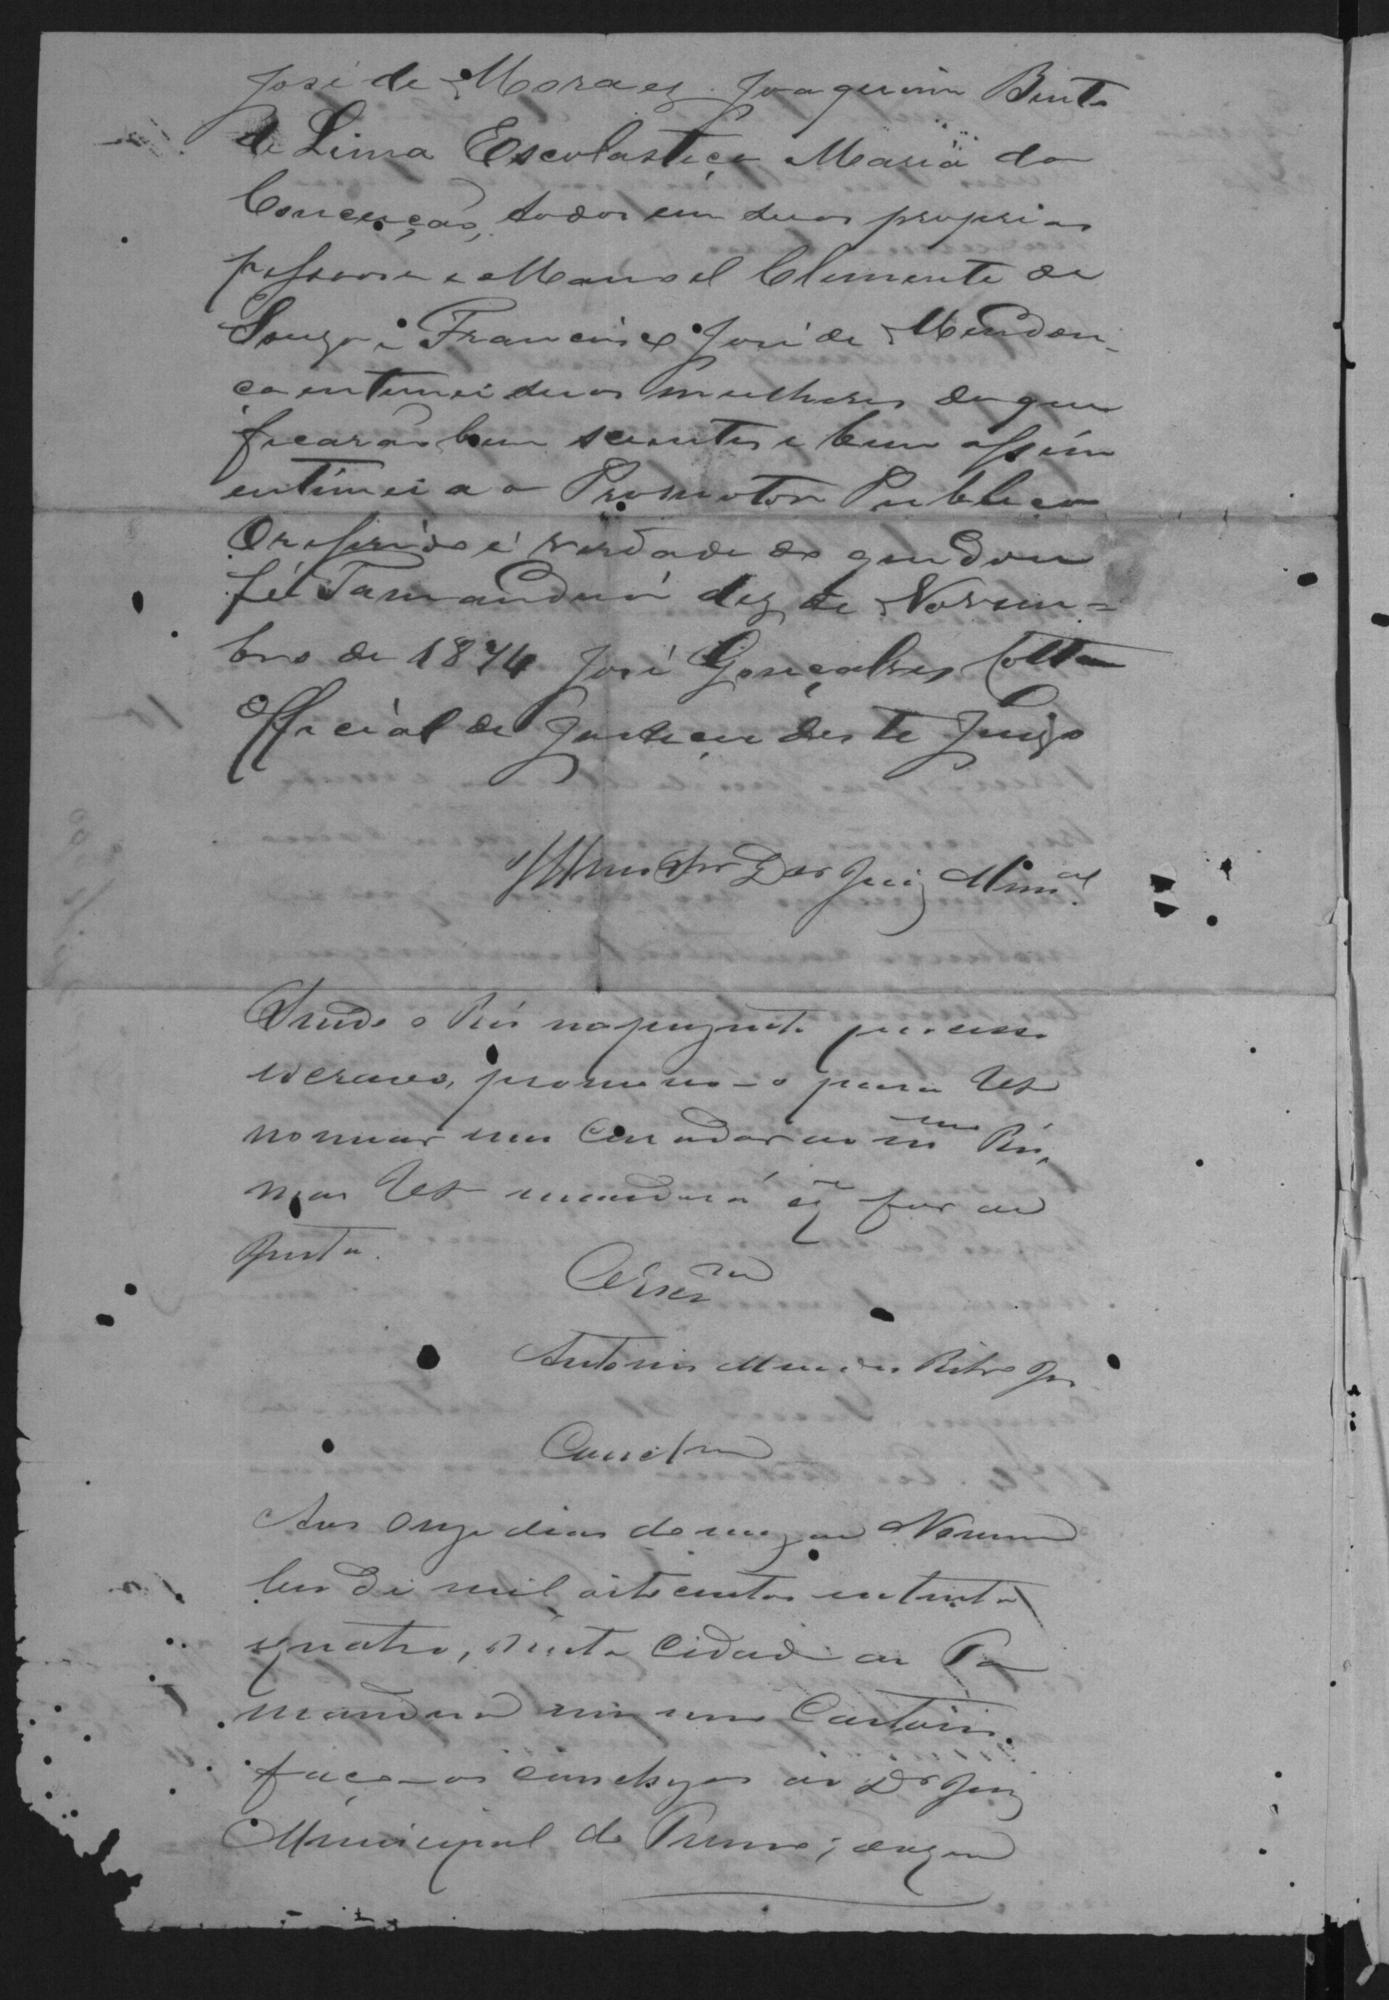 José de Moraes. Joaquim Bento
de Lima Escolastica Maria da
Conceição, todos em suas proprias
pessoas e Manoel Clemente de
Souza e Francisco José de Mendon-
ca entimei suas mulheres do que
ficarão bem scientes e bem assim
entimei a o Promotor Publico
O referido é verdade do que dou
fé Tamanduá dez de Novem-
bro de 1874 José Gonçalves Cotta
Official de Justiça deste Juizo
Illmo Snr Dor Juiz Munal
Sendo o Réo no presente processo
escravo, promovo-o para VS
nomear um Curador ao mmo Réo,
mas VS mandará o q for de
Justa.
Antonio Ribro Jor
Conclm
Aos onze dias do mez de Novem
bro de mil oito centos e setenta
e quatro, nesta Cidade de Ta
manduá em meu Cartorio
faço-os conclusos ao Dr Juiz
Municipal do Termo; do que